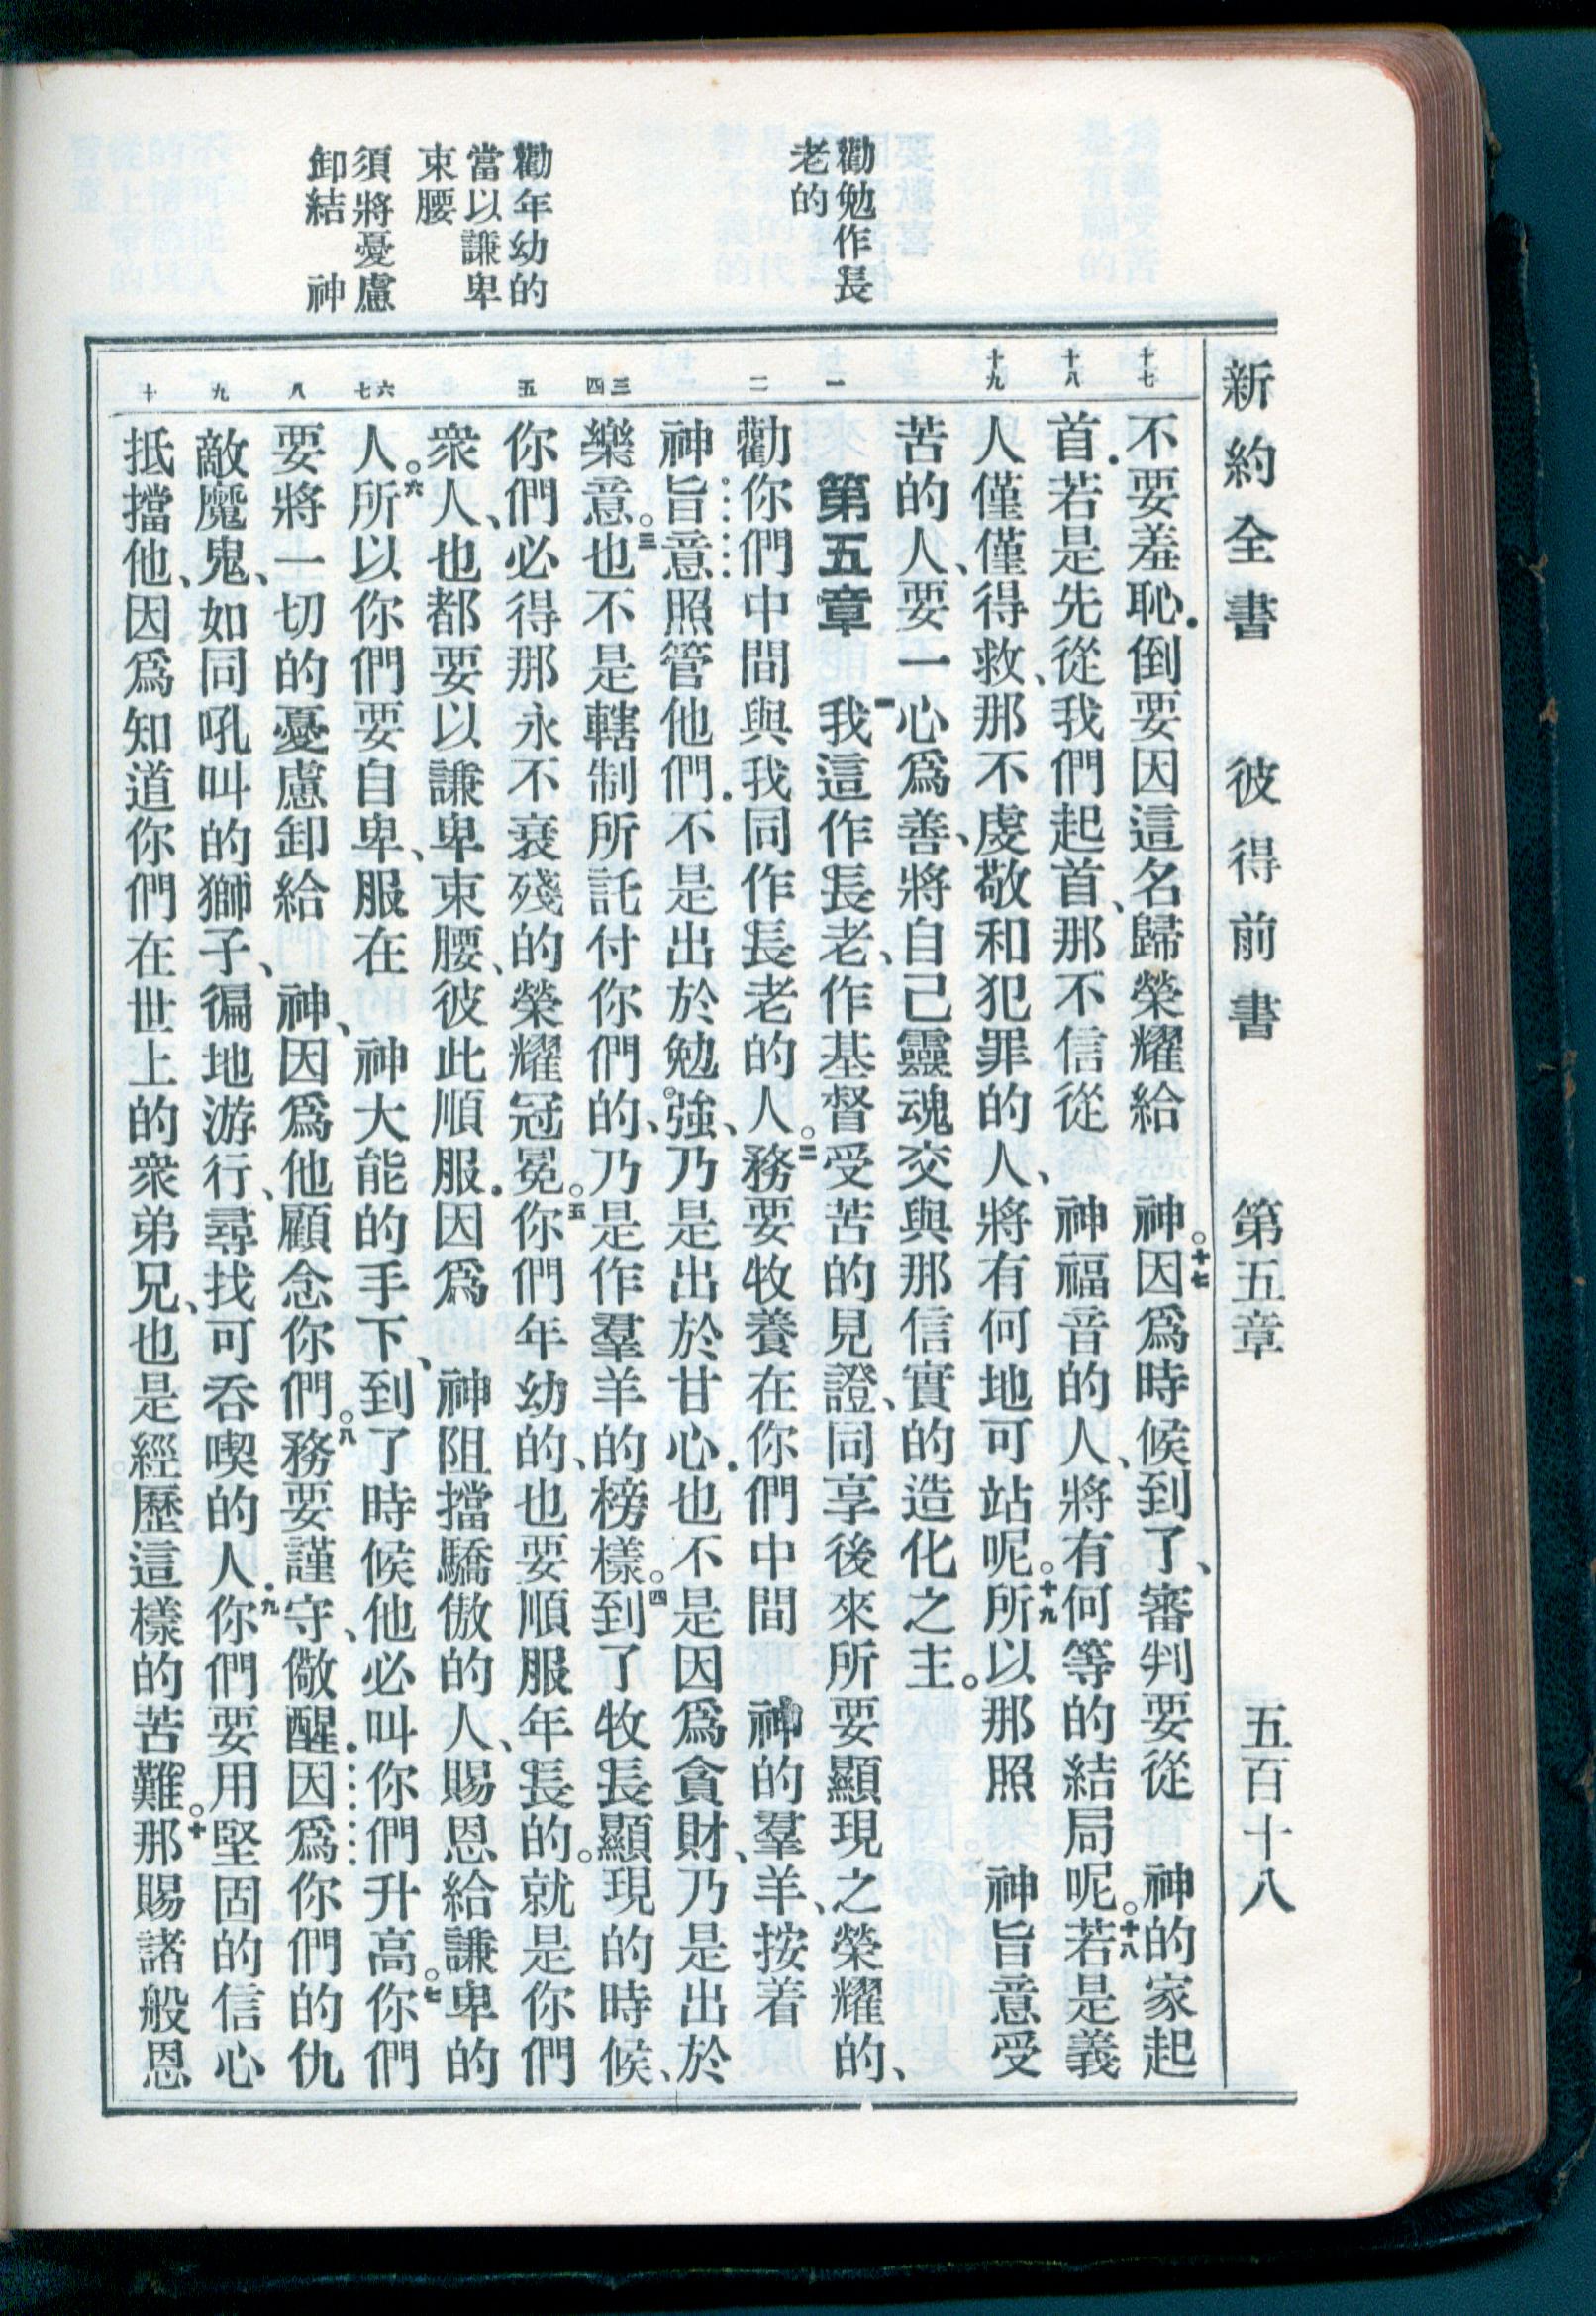 新約全書 彼得前書 第五章 五百十八
勸勉作長
老的
勸年幼的
當以謙卑
束腰
須將憂慮
卸結 神
十七
十八
十九
一
二
三
四
五
六
七
八
九
十
不要羞恥.倒要因這名歸榮耀給 神。十七因爲時候到了、審判要從 神的家起
首.若是先從我們起首、那不信從 神福音的人、將有何等的結局呢。十八若是義
人僅僅得救、那不虔敬和犯罪的人、將有何地可站呢。十九所以那照 神旨意受
苦的人、要一心爲善、將自己靈魂交與那信實的造化之主。
第五章 一我這作長老、作基督受苦的見證、同享後來所要顯現之榮耀的、
勸你們中間與我同作長老的人。二務要牧養在你們中間 神的羣羊、按着
神旨意照管他們.不是出於勉強、乃是出於甘心.也不是因爲貪財、乃是出於
樂意。三也不是轄制所託付你們的、乃是作羣羊的榜樣。四到了牧長顯現的時候、
你們必得那永不衰殘的榮耀冠冕。五你們年幼的、也要順服年長的。就是你們
衆人、也都要以謙卑束腰、彼此順服.因爲 神阻擋驕傲的人、賜恩給謙卑的
人。六所以你們要自卑、服在 神大能的手下、到了時候他必叫你們升高。七你們
要將一切的憂慮卸給 神、因爲他顧念你們。八務要謹守、儆醒.因爲你們的仇
敵魔鬼、如同吼叫的獅子、徧地游行、尋找可吞喫的人.九你們要用堅固的信心
抵擋他、因爲知道你們在世上的衆弟兄、也是經歷這樣的苦難。十那賜諸般恩